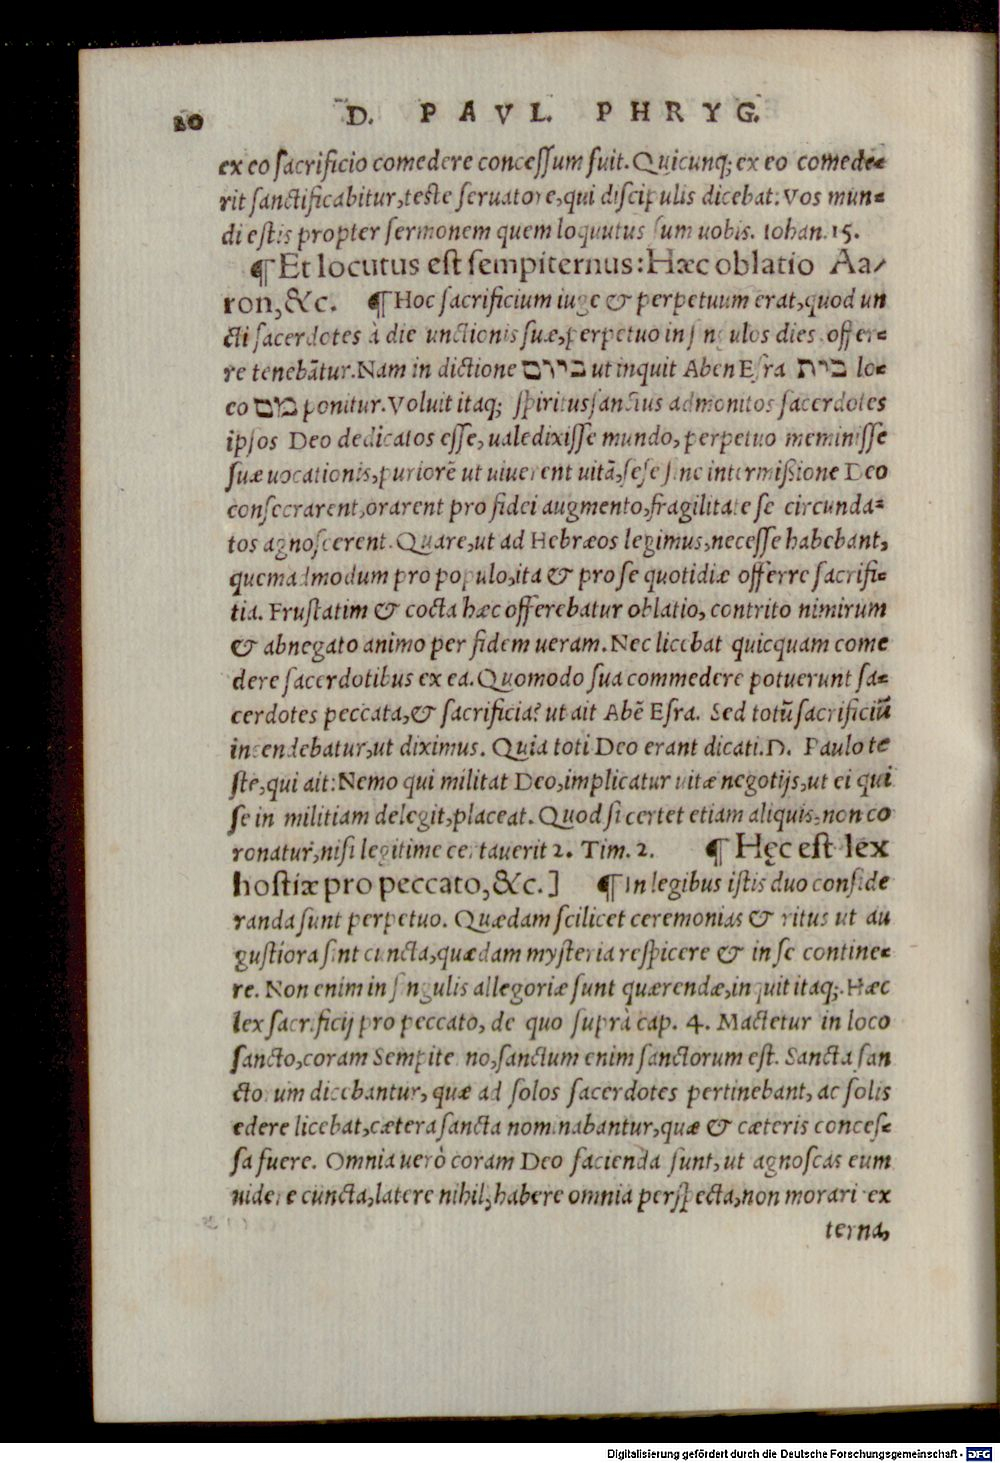 20 D. PAVL. PHRYG.
ex eo sacrificio comedere concessum fuit. Quicunq; ex eo comede-
rit sanctificabitur, teste seruatore, qui discipulis dicebat: Vos mun-
di estis propter sermonem quem loquutus sum uobis. Iohan. 15.
¶ Et locutus est sempiternus: Hæc oblatio Aa-
ron, &c. ¶ Hoc sacrificium iuge & perpetuum erat, quod un
cti sacerdotes à die unctionis suæ, perpetuo in singulos dies offer-
re tenebātur. Nam in dictione ביום ut inquit Aben Esra בית lo-
co מם ponitur. Voluit itaq; spiritus sanctus admonitos sacerdotes
ipsos Deo dedicatos esse, ualedixisse mundo, perpetuo meminisse
suæ uocationis, puriorē ut uiuerent uitā, sese sine intermißione Deo
consecrarent, orarent pro fidei augmento, fragilitate se circunda-
tos agnoscerent. Quare, ut ad Hebræos legimus, necesse habebant,
quemadmodum pro populo, ita & pro se quotidiæ offerre sacrifi-
tia. Frustatim & cocta hæc offerebatur oblatio, contrito nimirum
& abnegato animo per fidem ueram. Nec licebat quicquam come
dere sacerdotibus ex ea. Quomodo sua commedere potuerunt sa-
cerdotes peccata, & sacrificia? ut ait Abē Esra. Sed totū sacrificiū
incendebatur, ut diximus. Quia toti Deo erant dicati. D. Paulo te
ste, qui ait: Nemo qui militat Deo, implicatur uitæ negotijs, ut ei qui
se in militiam delegit, placeat. Quod si certet etiam aliquis, non co
ronatur, nisi legitime certauerit 2. Tim. 2. ¶ Hęc est lex
hostiæ pro peccato, &c.] ¶ In legibus istis duo conside
randa sunt perpetuo. Quædam scilicet ceremonias & ritus ut au
gustiora sint cuncta, quædam mysteria respicere & in se contine-
re. Non enim in singulis allegoriæ sunt quærendæ, inquit itaq;. Hæc
lex sacrificij pro peccato, de quo suprà cap. 4. Mactetur in loco
sancto, coram Sempiterno, sanctum enim sanctorum est. Sancta san
ctorum dicebantur, quæ ad solos sacerdotes pertinebant, ac solis
edere licebat, cætera sancta nominabantur, quæ & cæteris conces-
sa fuere. Omnia uerò coram Deo facienda sunt, ut agnoscas eum
uidere cuncta, latere nihil, habere omnia perspecta, non morari ex
terna,
Digitalisierung gefördert durch die Deutsche Forschungsgemeinschaft - DFG